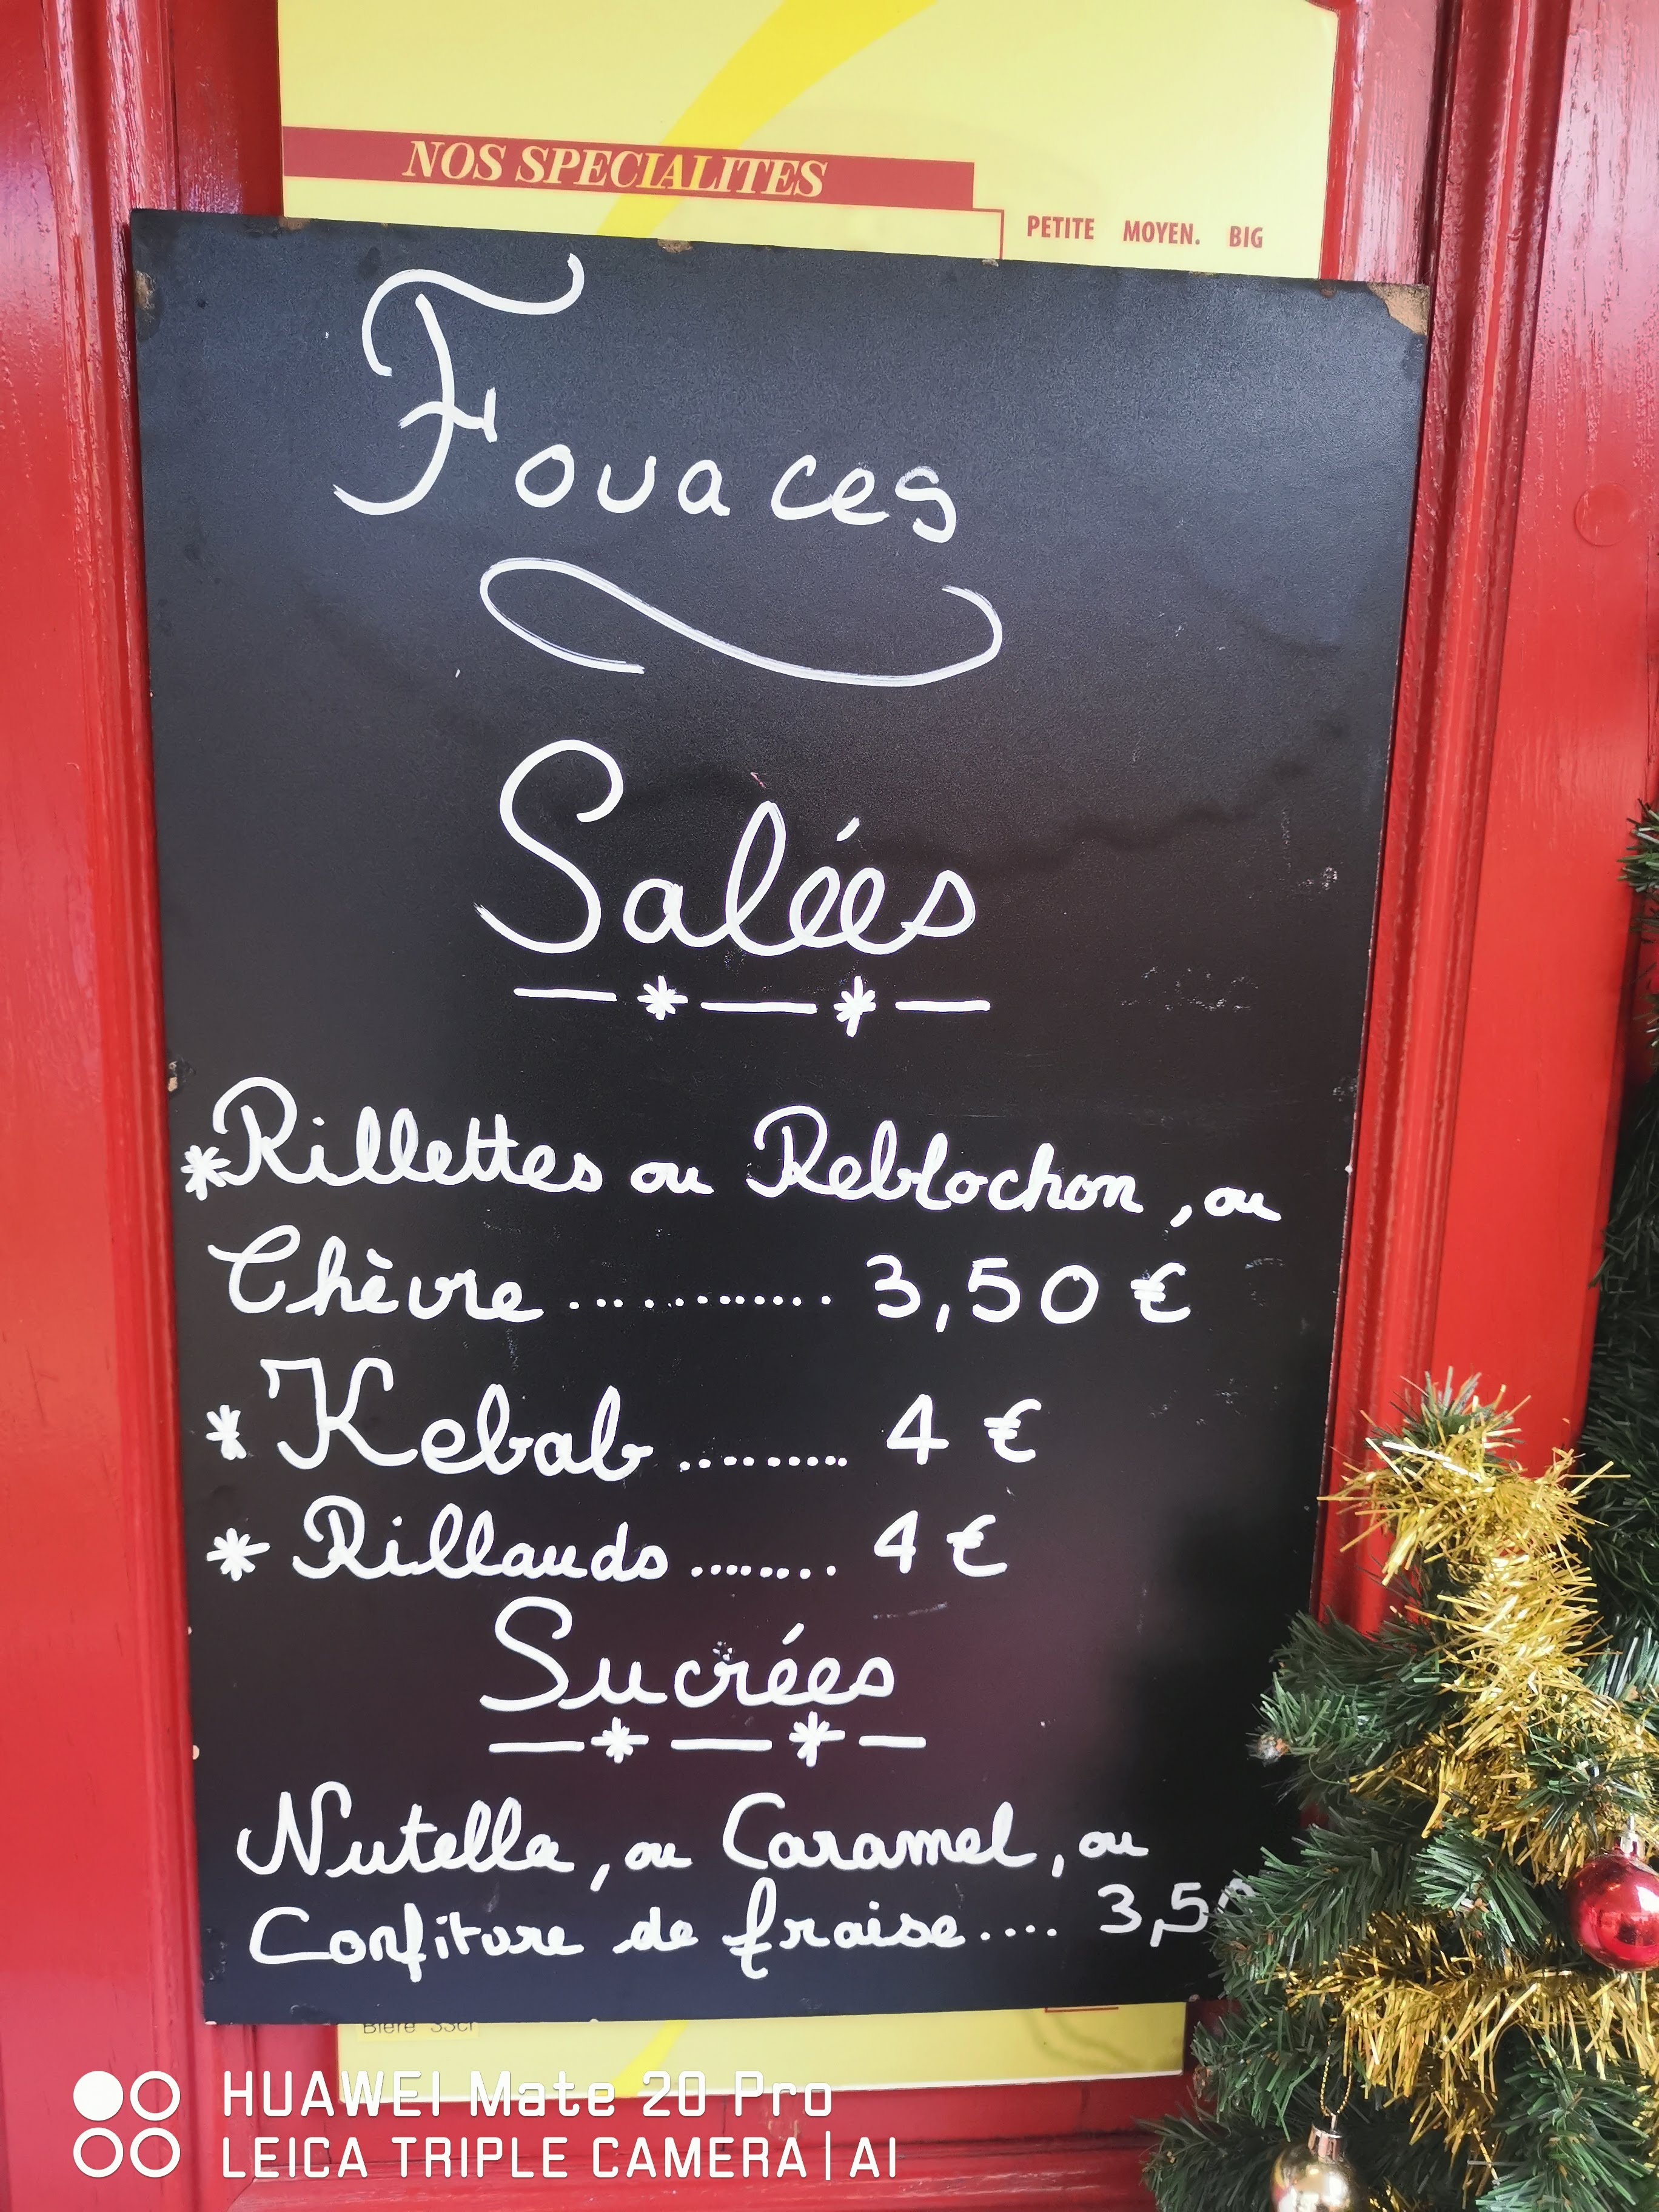 NOS SPECIALITES
PETITE MOYEN. BIG
Fouaces
Salées
*Rillettes ou Reblochon, ou
Chèvre ............ 3,50 €
* Kebab ......... 4 €
* Rillauds ........ 4 €
Sucrées
Nutella, ou Caramel, ou
Confiture de fraise.... 3,50
Bière 33cl
HUAWEI Mate 20 Pro
LEICA TRIPLE CAMERA | AI